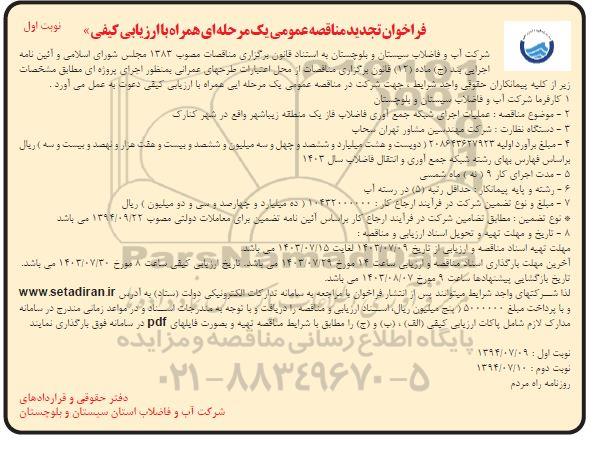 نوبت اول
فراخوان تجدید مناقصه عمومی یک مرحله ای همراه با ارزیابی کیفی »
شرکت آب و فاضلاب سیستان و بلوچستان به استناد قانون برگزاری مناقصات مصوب ۱۳۸۳ مجلس شورای اسلامی و آئین نامه
اجرایی بند (ج) ماده (۱۲) قانون برگزاری مناقصات از محل اعتبارات طرحهای عمرانی بمنظور اجرای پروژه ای مطابق مشخصات
زیر از کلیه پیمانکاران حقوقی واجد شرایط ، جهت شرکت در مناقصه عمومی یک مرحله ایی همراه با ارزیابی کیفی دعوت به عمل می آورد .
۱ کارفرما شرکت آب و فاضلاب سیستان و بلوچستان
۲ - موضوع مناقصه : عملیات اجرای شبکه جمع آوری فاضلاب فاز یک منطقه زیباشهر واقع در شهر کنارک
۳ - دستگاه نظارت : شرکت مهندسین مشاور تهران سحاب
۴ - مبلغ برآورد اولیه ۲۰۸۶۴۳۶۲۷۹۲۳ ( دویست و هشت میلیارد و ششصد و چهل و سه میلیون و ششصد و بیست و هفت هزار و نهصد و بیست و سه ) ریال
براساس فهارس بهای رشته شبکه جمع آوری و انتقال فاضلاب سال ۱۴۰۳
۵ - مدت اجرای کار ۹ ( نه ) ماه شمسی
۶ - رشته و پایه پیمانکار : حداقل رتبه (۵) در رسته آب
۷ - مبلغ و نوع تضمین شرکت در فرآیند ارجاع کار : ۱۰۴۳۲۰۰۰۰۰۰ ( ده میلیارد و چهارصد و سی و دو میلیون ) ریال
* نوع تضمین : مطابق تضامین شرکت در فرآیند ارجاع کار براساس آئین نامه تضمین برای معاملات دولتی مصوب ۱۳۹۴/۰۹/۲۲ می باشد
۸ - تاریخ و مهلت تهیه و تحویل اسناد ارزیابی و مناقصه :
مهلت تهیه اسناد مناقصه و ارزیابی از تاریخ ۱۴۰۳/۰۷/۰۹ لغایت ۱۴۰۳/۰۷/۱۵ می باشد.
آخرین مهلت بارگذاری اسناد مناقصه و ارزیابی ساعت ۱۴ مورخ ۱۴۰۳/۰۷/۲۹ می باشد. تاریخ ارزیابی کیفی ساعت ۸ مورخ ۱۴۰۳/۰۷/۳۰ می باشد.
تاریخ بازگشایی پیشنهادها ساعت ۹ مورخ ۱۴۰۳/۰۸/۰۷ می باشد.
لذا شرکتهای واجد شرایط میتوانند پس از انتشار فراخوان با مراجعه به سامانه تدارکات الکترونیکی دولت (ستاد) به آدرس www.setadiran.ir
و با پرداخت مبلغ ۵۰۰۰۰۰۰ ( پنج میلیون ریال، اسناد ارزیابی و مناقصه را دریافت و با توجه به مندرجات اسناد و در مواعد زمانی مندرج در سامانه
مدارک لازم شامل پاکات ارزیابی کیفی (الف) ، (ب) و (ج) را مطابق با شرایط مناقصه تهیه و بصورت فایلهای pdf در سامانه فوق بارگذاری نمایند
پایگاه اطلاع رسانی مناقصه و مزایده
نوبت اول : ۱۳۹۴/۰۷/۰۹
نوبت دوم : ۱۳۹۴/۰۷/۱۰
روزنامه راه مردم
۰۲۱-۸۸۳۴۹۶۷۰-۵
دفتر حقوقی و قراردادهای
شرکت آب و فاضلاب استان سیستان و بلوچستان